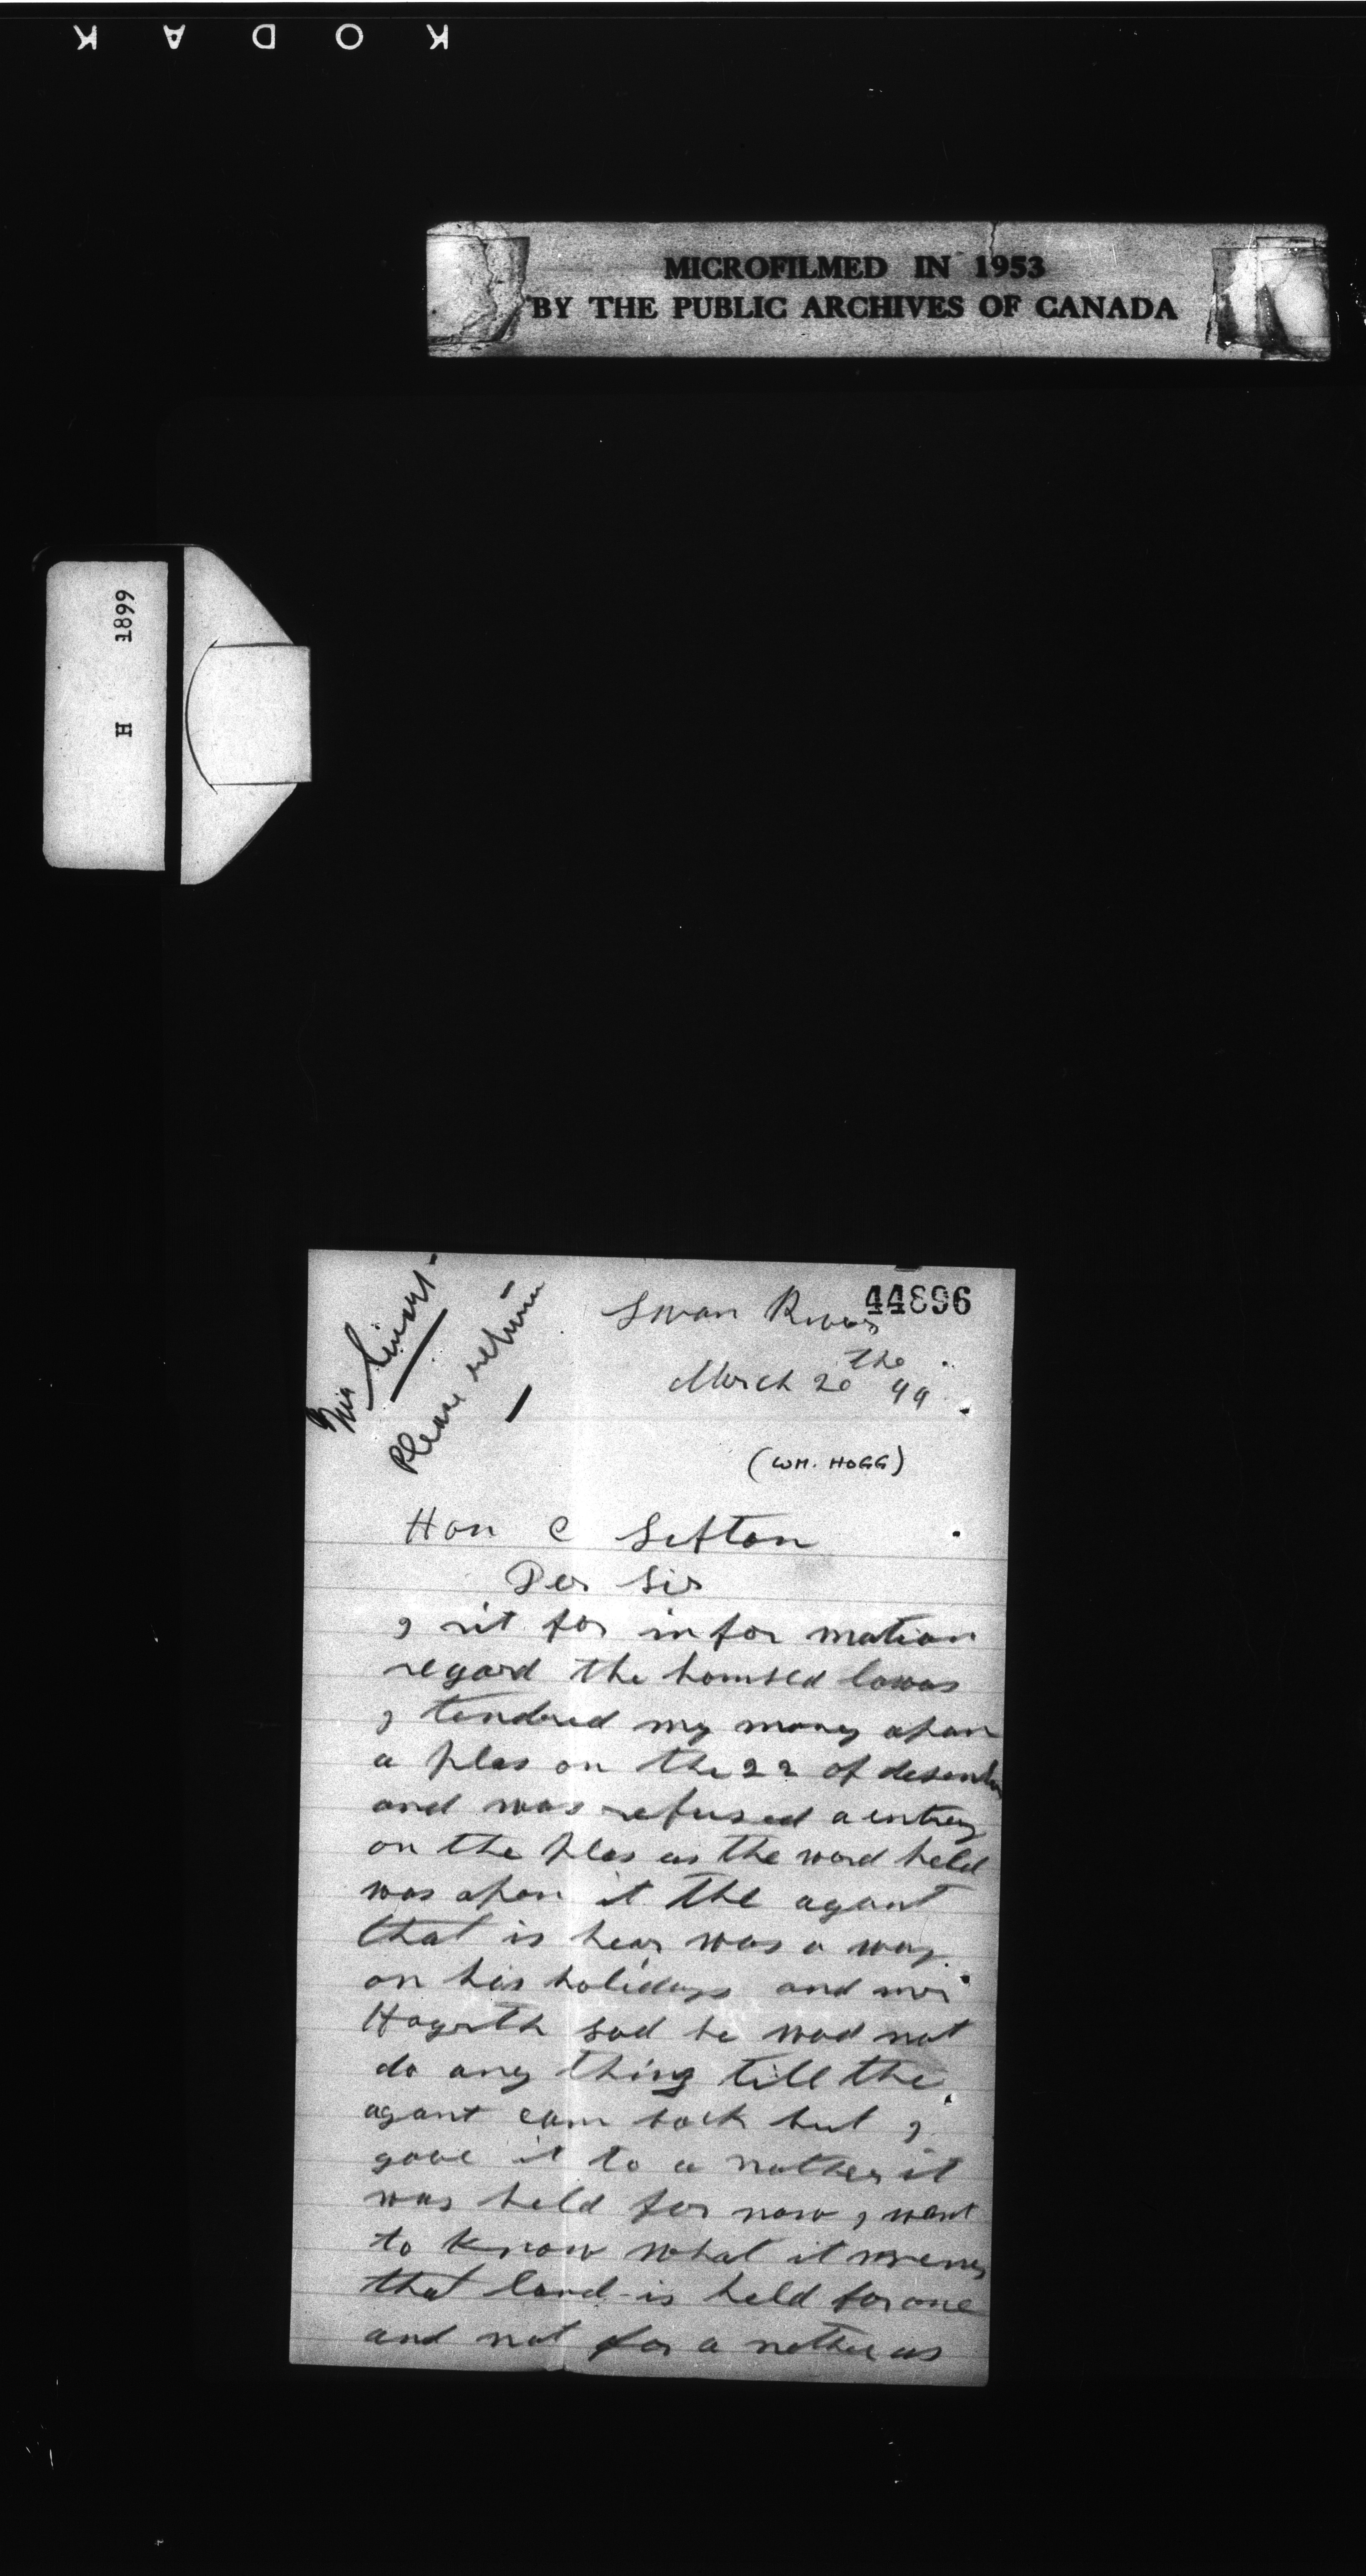 KODAK
MICROFILMED IN 1953
BY THE PUBLIC ARCHIVES OF CANADA
H 1899
44896
Please return
Swan River
March 20 the 99
(WM. HOGG)
Hon C Sefton
Der Sir
I rit for in for mation
regard the homsed lawas
I tendred my money apan
a plas on the 22 of desember
and was refused a entrey
on the plas as the word held
was apan it the agant
that is hear was a way
on his holidays and mr
Hagrth sad he wod not
do any thing till the
agant cam back but I
gave it to a nather it
was held for now I want
to know what it menes
that land is held for one
and not for a nather as